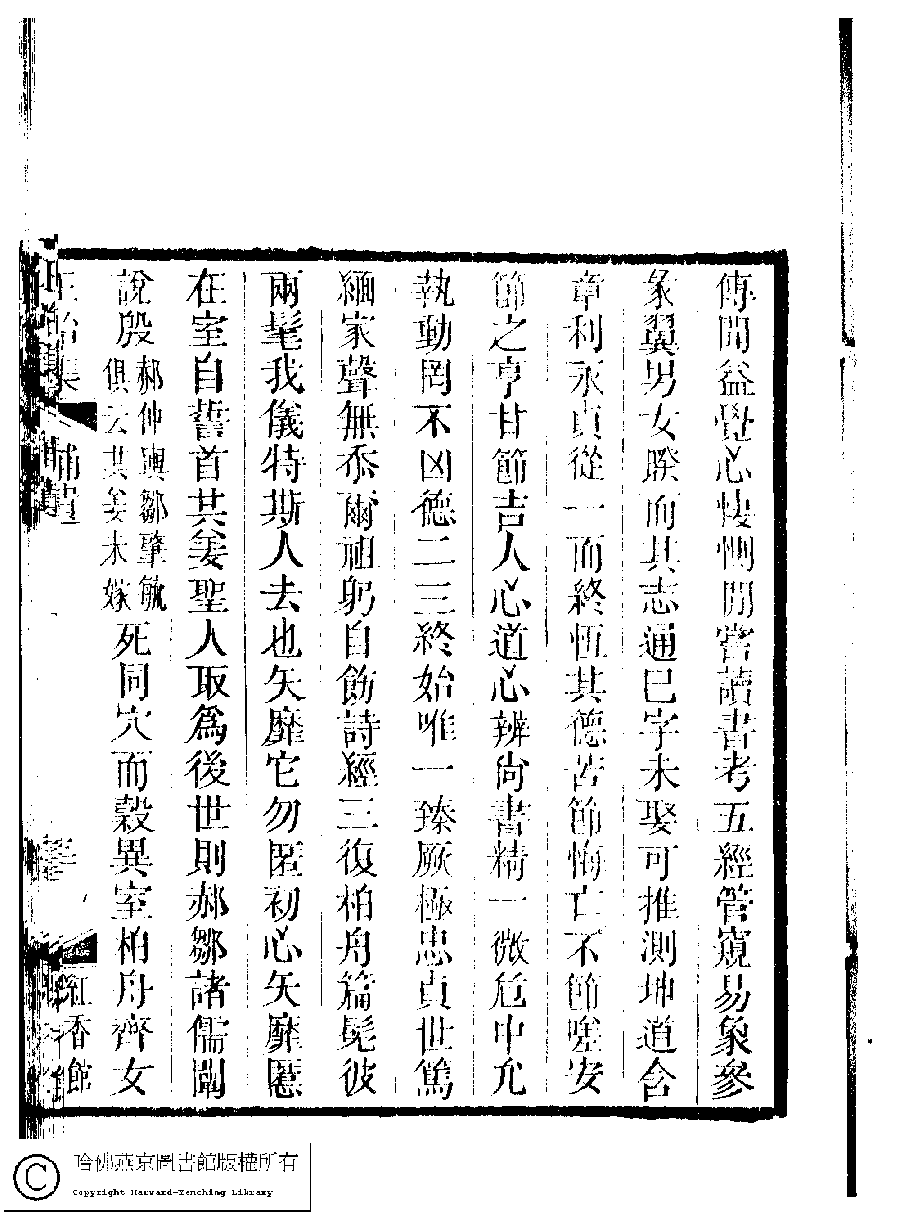 傳聞益覺心悽惻聞嘗讀書考五經管窺易象參
彖翼男女睽而其志通巳字未娶可推測坤道含
章利永貞從一而終恆其德苦節悔亡不節嗟安
節之亨甘節吉人心道心辨尙書精一微危中允
執動罔不凶德二三終始唯一臻厥極忠貞世篤
緬家聲無忝爾祖躬自飭詩經三復柏舟篇髧彼
兩髦我儀特斯人去也矢靡它勿匿初心矢靡慝
在室自誓首共姜聖人取爲後世則郝鄒諸儒闡
說殷郝仲輿鄒肇敏俱云共姜未嫁死同穴而穀異室柏舟齊女
正始集
補遺
紅香館
哈佛燕京圖書館版權所有
Copyright Harvard-Yenching Library